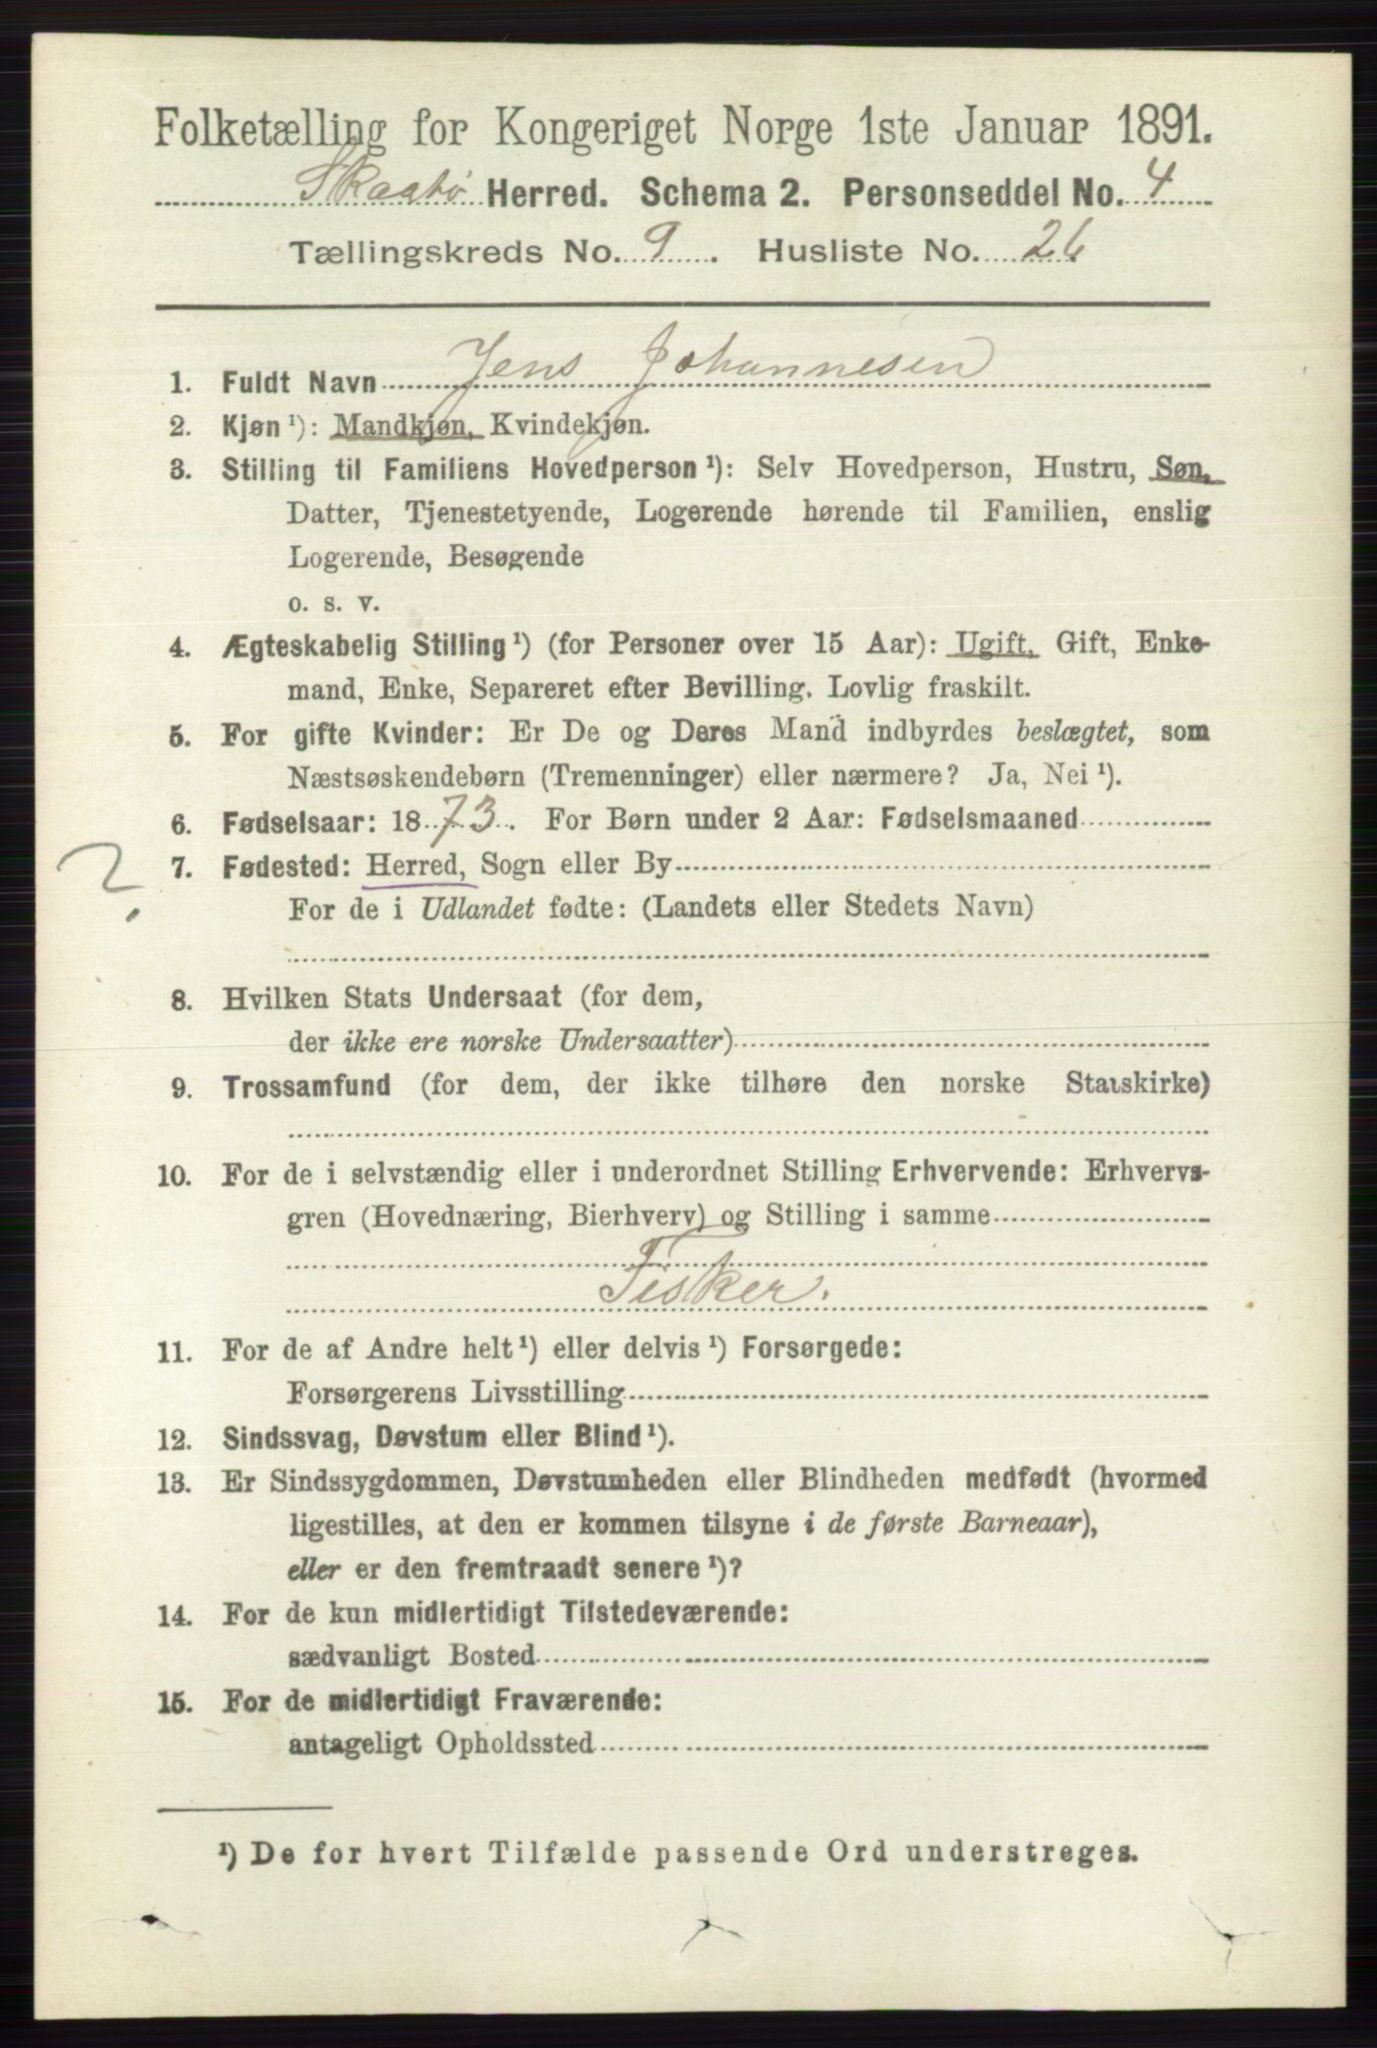 Folketælling for Kongeriget Norge 1ste Januar 1891.
Skaatø Herred. Schema 2. Personseddel No. 4
Tællingskreds No. 9. Husliste No. 26
1. Fuldt Navn Jens Johannesen
2. Kjøn ¹): Mandkjøn, Kvindekjøn.
3. Stilling til Familiens Hovedperson ¹): Selv Hovedperson, Hustru, Søn,
Datter, Tjenestetyende, Logerende hørende til Familien, enslig
Logerende, Besøgende
o. s. v.
4. Ægteskabelig Stilling ¹) (for Personer over 15 Aar): Ugift, Gift, Enke-
mand, Enke, Separeret efter Bevilling. Lovlig fraskilt.
5. For gifte Kvinder: Er De og Deres Mand indbyrdes beslægtet, som
Næstsøskendebørn (Tremenninger) eller nærmere? Ja, Nei ¹).
6. Fødselsaar: 1873. For Børn under 2 Aar: Fødselsmaaned
? 7. Fødested: Herred, Sogn eller By
For de i Udlandet fødte: (Landets eller Stedets Navn)
8. Hvilken Stats Undersaat (for dem,
der ikke ere norske Undersaatter)
9. Trossamfund (for dem, der ikke tilhøre den norske Statskirke)
10. For de i selvstændig eller i underordnet Stilling Erhvervende: Erhvervs-
gren (Hovednæring, Bierhverv) og Stilling i samme
Fisker.
11. For de af Andre helt ¹) eller delvis ¹) Forsørgede:
Forsørgerens Livsstilling
12. Sindssvag, Døvstum eller Blind ¹).
13. Er Sindssygdommen, Døvstumheden eller Blindheden medfødt (hvormed
ligestilles, at den er kommen tilsyne i de første Barneaar),
eller er den fremtraadt senere ¹)?
14. For de kun midlertidigt Tilstedeværende:
sædvanligt Bosted
15. For de midlertidigt Fraværende:
antageligt Opholdssted
¹) De for hvert Tilfælde passende Ord understreges.